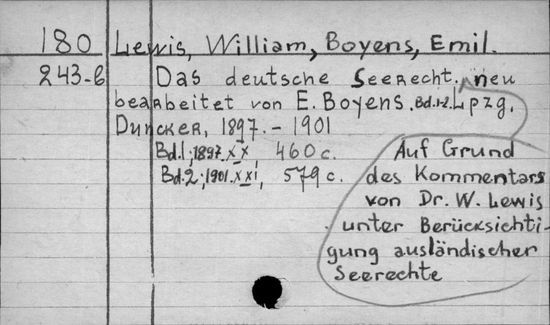 180 Lewis, William, Boyens, Emil.
243-b Das deutsche Seerecht, neu
bearbeitet von E. Boyens. Bd.1-2. Lpzg,
Duncker, 1897. - 1901
Bd.1; 1897. XX, 460 c.
Bd.2; 1901. XXI, 579 c.
Auf Grund
des Kommentars
von Dr. W. Lewis
unter Berücksichti-
gung ausländischer
Seerechte